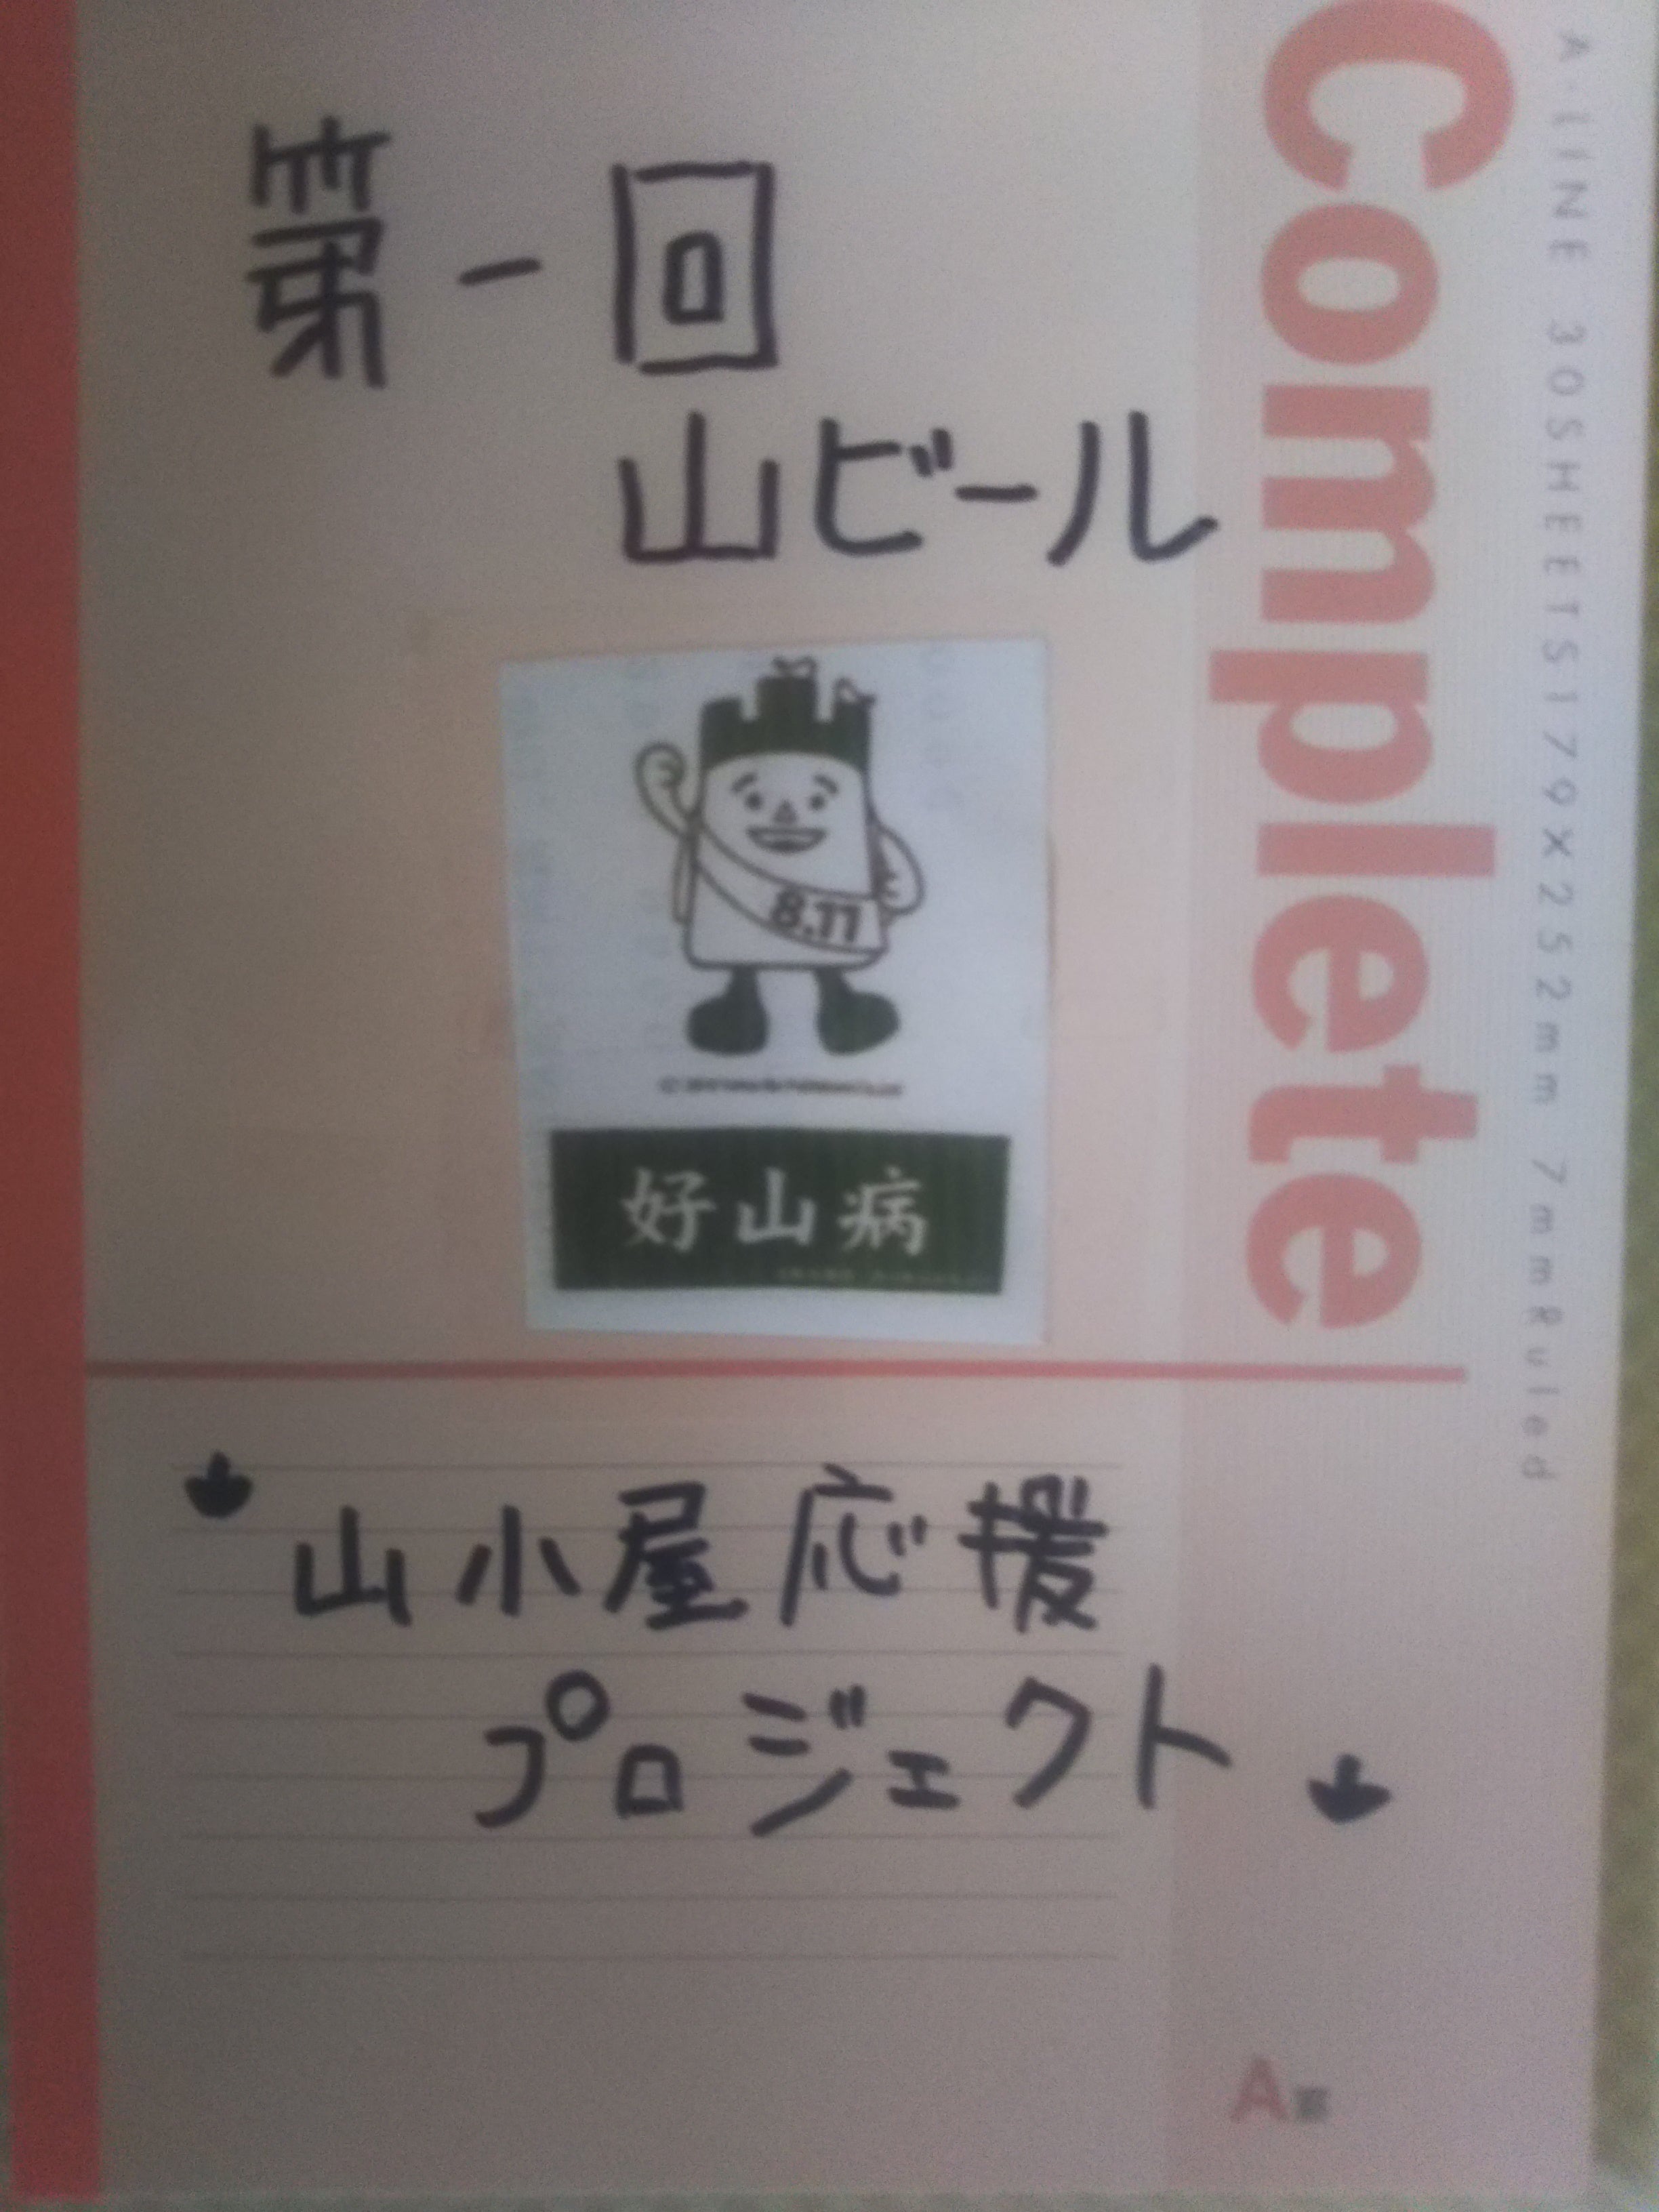 第一回
山ビール
8.11
好山病
山小屋応援
プロジェクト
Complete
A・LINE 30SHEETS 179×252mm 7mmRuled
A罫